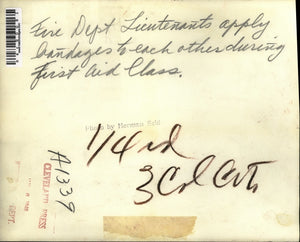 Fire Dept Lieutenants apply
bandages to each other during
first Aid Class.
Photo by Herman Seid
1/4 ad
3 Col Cuts
A1339
CLEVELAND PRESS